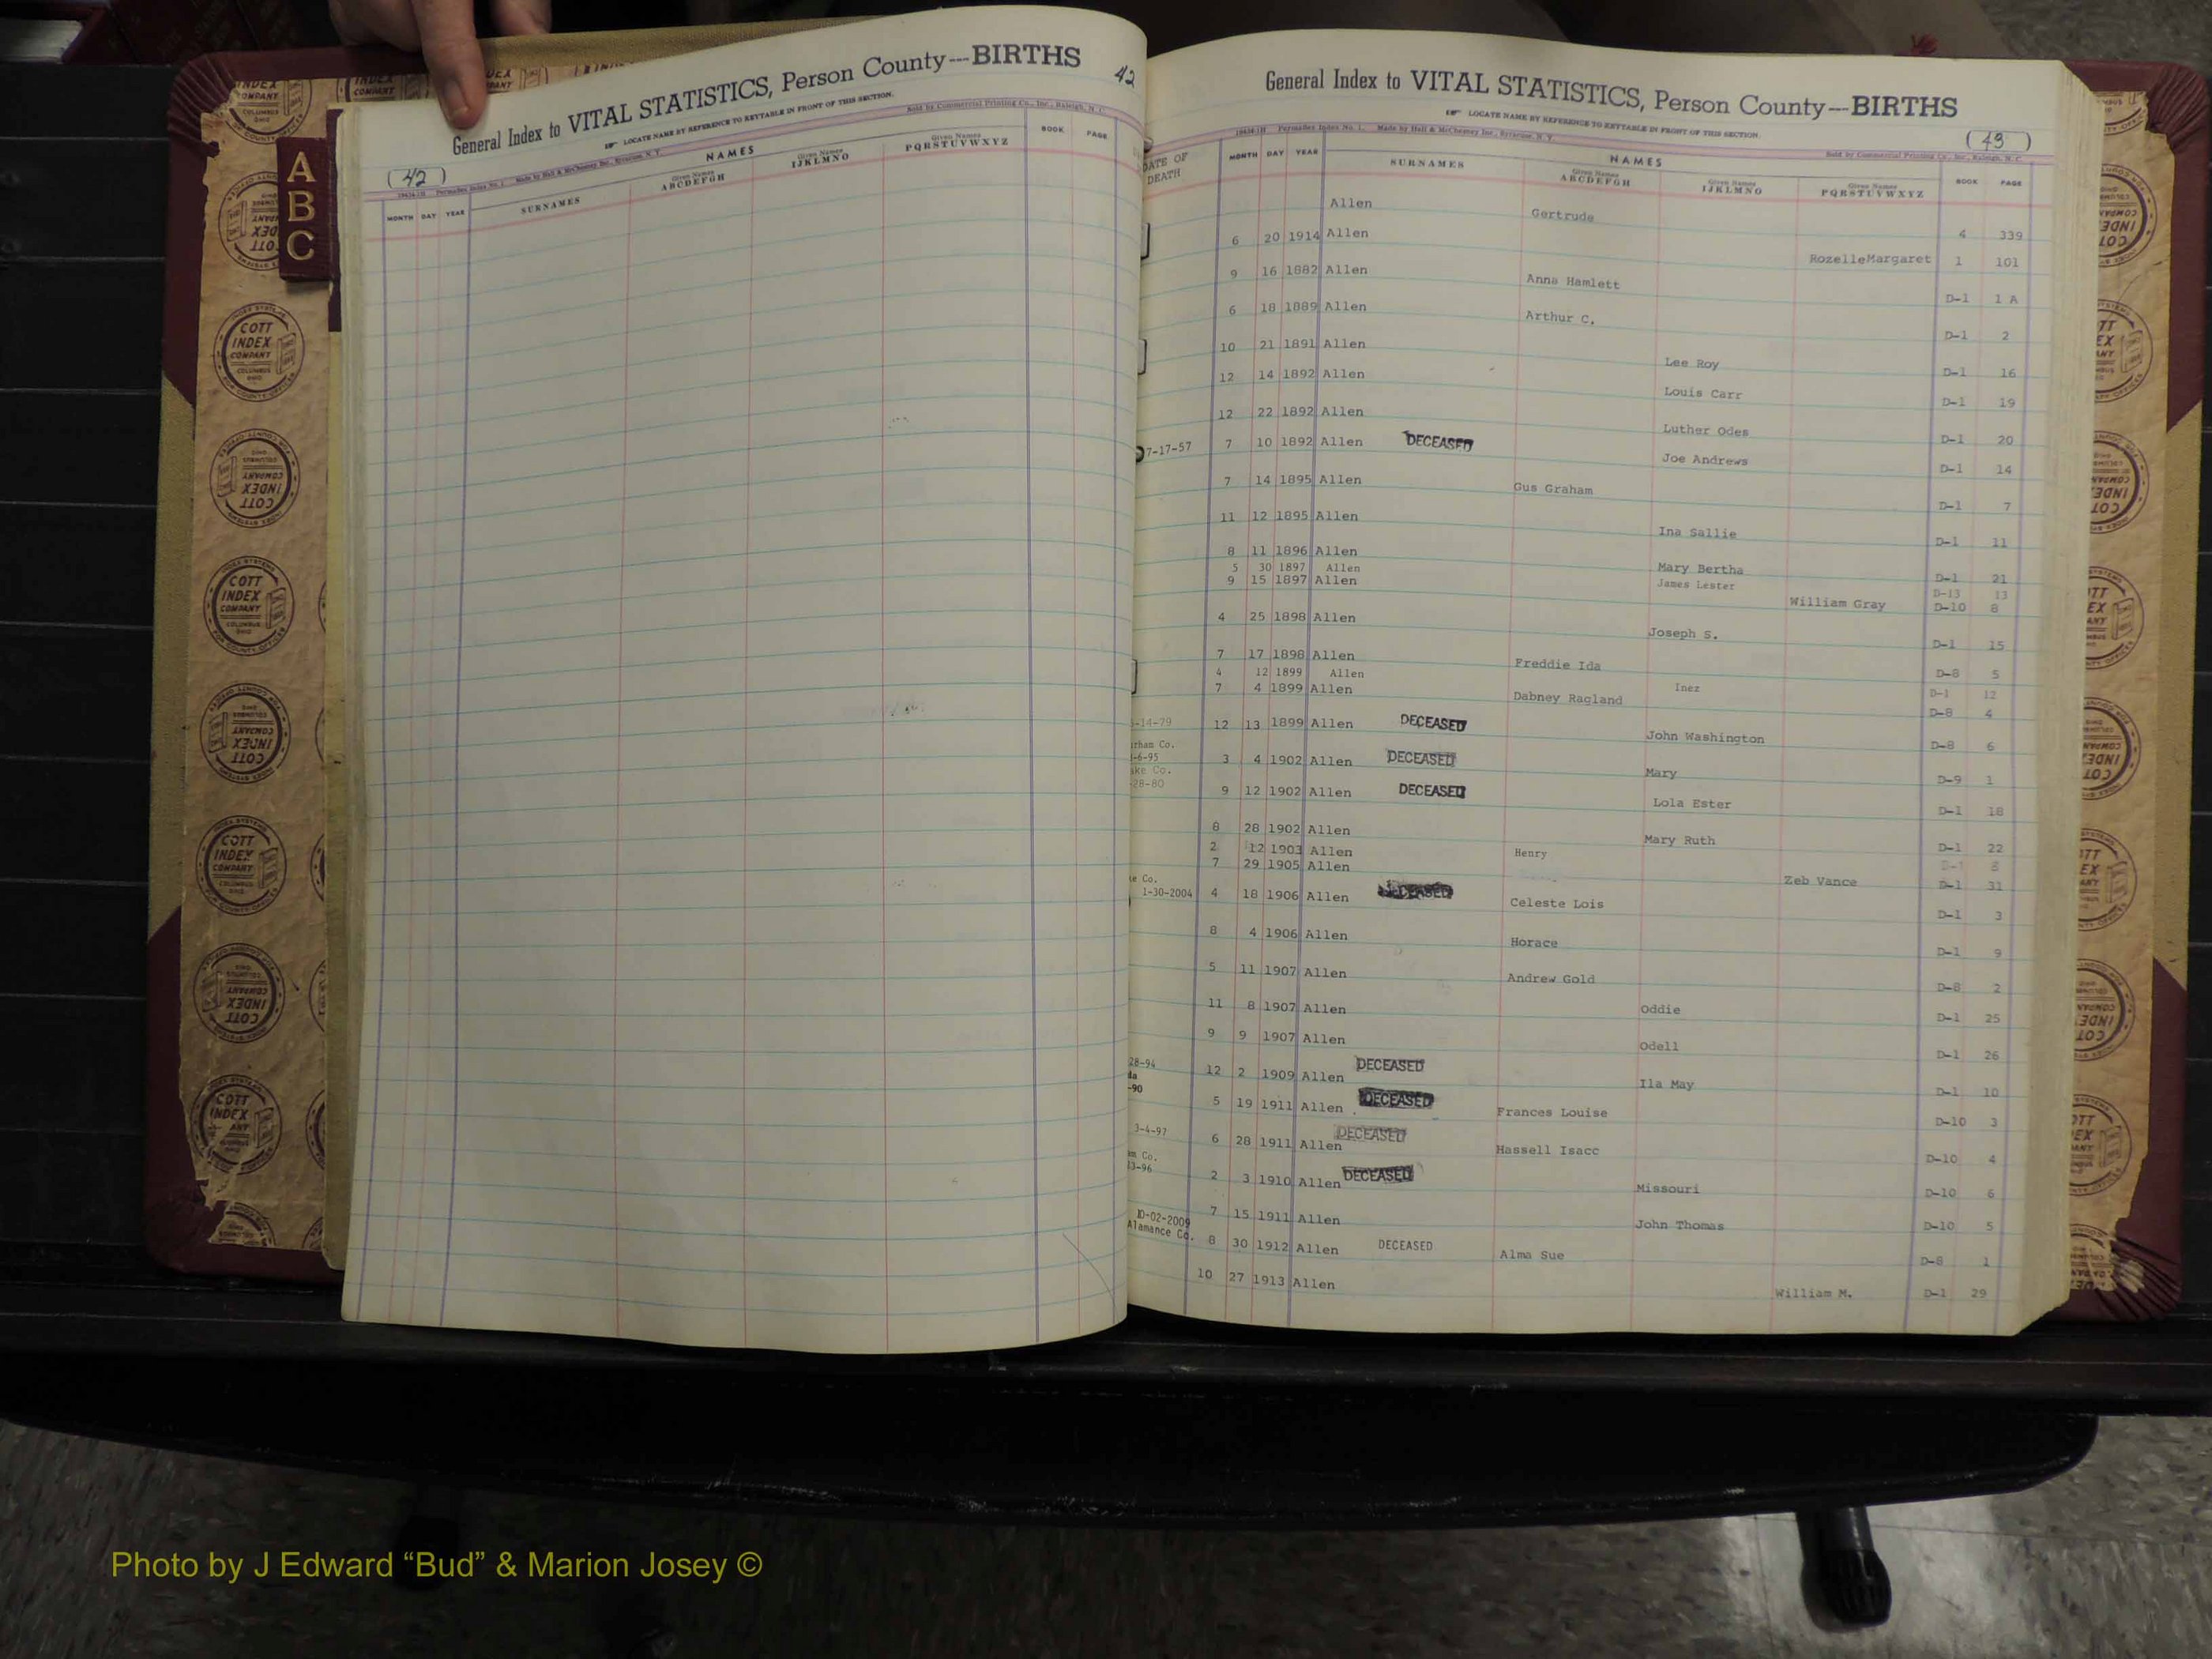 General Index to VITAL STATISTICS, Person County---BIRTHS
42
LOCATE NAME BY REFERENCE TO KEYTABLE IN FRONT OF THIS SECTION.
(42)
Made by Hall & McChesney Inc., Syracuse, N. Y.
Sold by Commercial Printing Co., Inc., Raleigh, N. C.
MONTH DAY YEAR SURNAMES NAMES Given Names ABCDEFGH Given Names IJKLMNO Given Names PQRSTUVWXYZ BOOK PAGE
A
B
C
COTT INDEX COMPANY COLUMBUS OHIO
General Index to VITAL STATISTICS, Person County---BIRTHS
LOCATE NAME BY REFERENCE TO KEYTABLE IN FRONT OF THIS SECTION.
(43)
Made by Hall & McChesney Inc., Syracuse, N. Y. Sold by Commercial Printing Co., Inc., Raleigh, N. C.
DATE OF DEATH MONTH DAY YEAR SURNAMES NAMES Given Names ABCDEFGH Given Names IJKLMNO Given Names PQRSTUVWXYZ BOOK PAGE
Allen Gertrude 4 339
6 20 1914 Allen RozelleMargaret 1 101
9 16 1882 Allen Anna Hamlett D-1 1 A
6 18 1889 Allen Arthur C. D-1 2
10 21 1891 Allen Lee Roy D-1 16
12 14 1892 Allen Louis Carr D-1 19
12 22 1892 Allen Luther Odes D-1 20
7-17-57 7 10 1892 Allen DECEASED Joe Andrews D-1 14
7 14 1895 Allen Gus Graham D-1 7
11 12 1895 Allen Ina Sallie D-1 11
8 11 1896 Allen Mary Bertha D-1 21
5 30 1897 Allen James Lester D-13 13
9 15 1897 Allen William Gray D-10 8
4 25 1898 Allen Joseph S. D-1 15
7 17 1898 Allen Freddie Ida D-8 5
4 12 1899 Allen Inez D-1 12
7 4 1899 Allen Dabney Ragland D-8 4
-14-79 12 13 1899 Allen DECEASED John Washington D-8 6
rham Co.
-6-95 3 4 1902 Allen DECEASED Mary D-9 1
ake Co.
-28-80 9 12 1902 Allen DECEASED Lola Ester D-1 18
8 28 1902 Allen Mary Ruth D-1 22
2 12 1903 Allen Henry D-1 8
7 29 1905 Allen Zeb Vance D-1 31
e Co.
1-30-2004 4 18 1906 Allen DECEASED Celeste Lois D-1 3
8 4 1906 Allen Horace D-1 9
5 11 1907 Allen Andrew Gold D-8 2
11 8 1907 Allen Oddie D-1 25
9 9 1907 Allen Odell D-1 26
28-94 12 2 1909 Allen DECEASED Ila May D-1 10
da
-90 5 19 1911 Allen DECEASED Frances Louise D-10 3
3-4-97 6 28 1911 Allen DECEASED Hassell Isacc D-10 4
m Co.
3-96 2 3 1910 Allen DECEASED Missouri D-10 6
7 15 1911 Allen John Thomas D-10 5
10-02-2009
Alamance Co. 8 30 1912 Allen DECEASED Alma Sue D-8 1
10 27 1913 Allen William M. D-1 29
Photo by J Edward “Bud” & Marion Josey ©